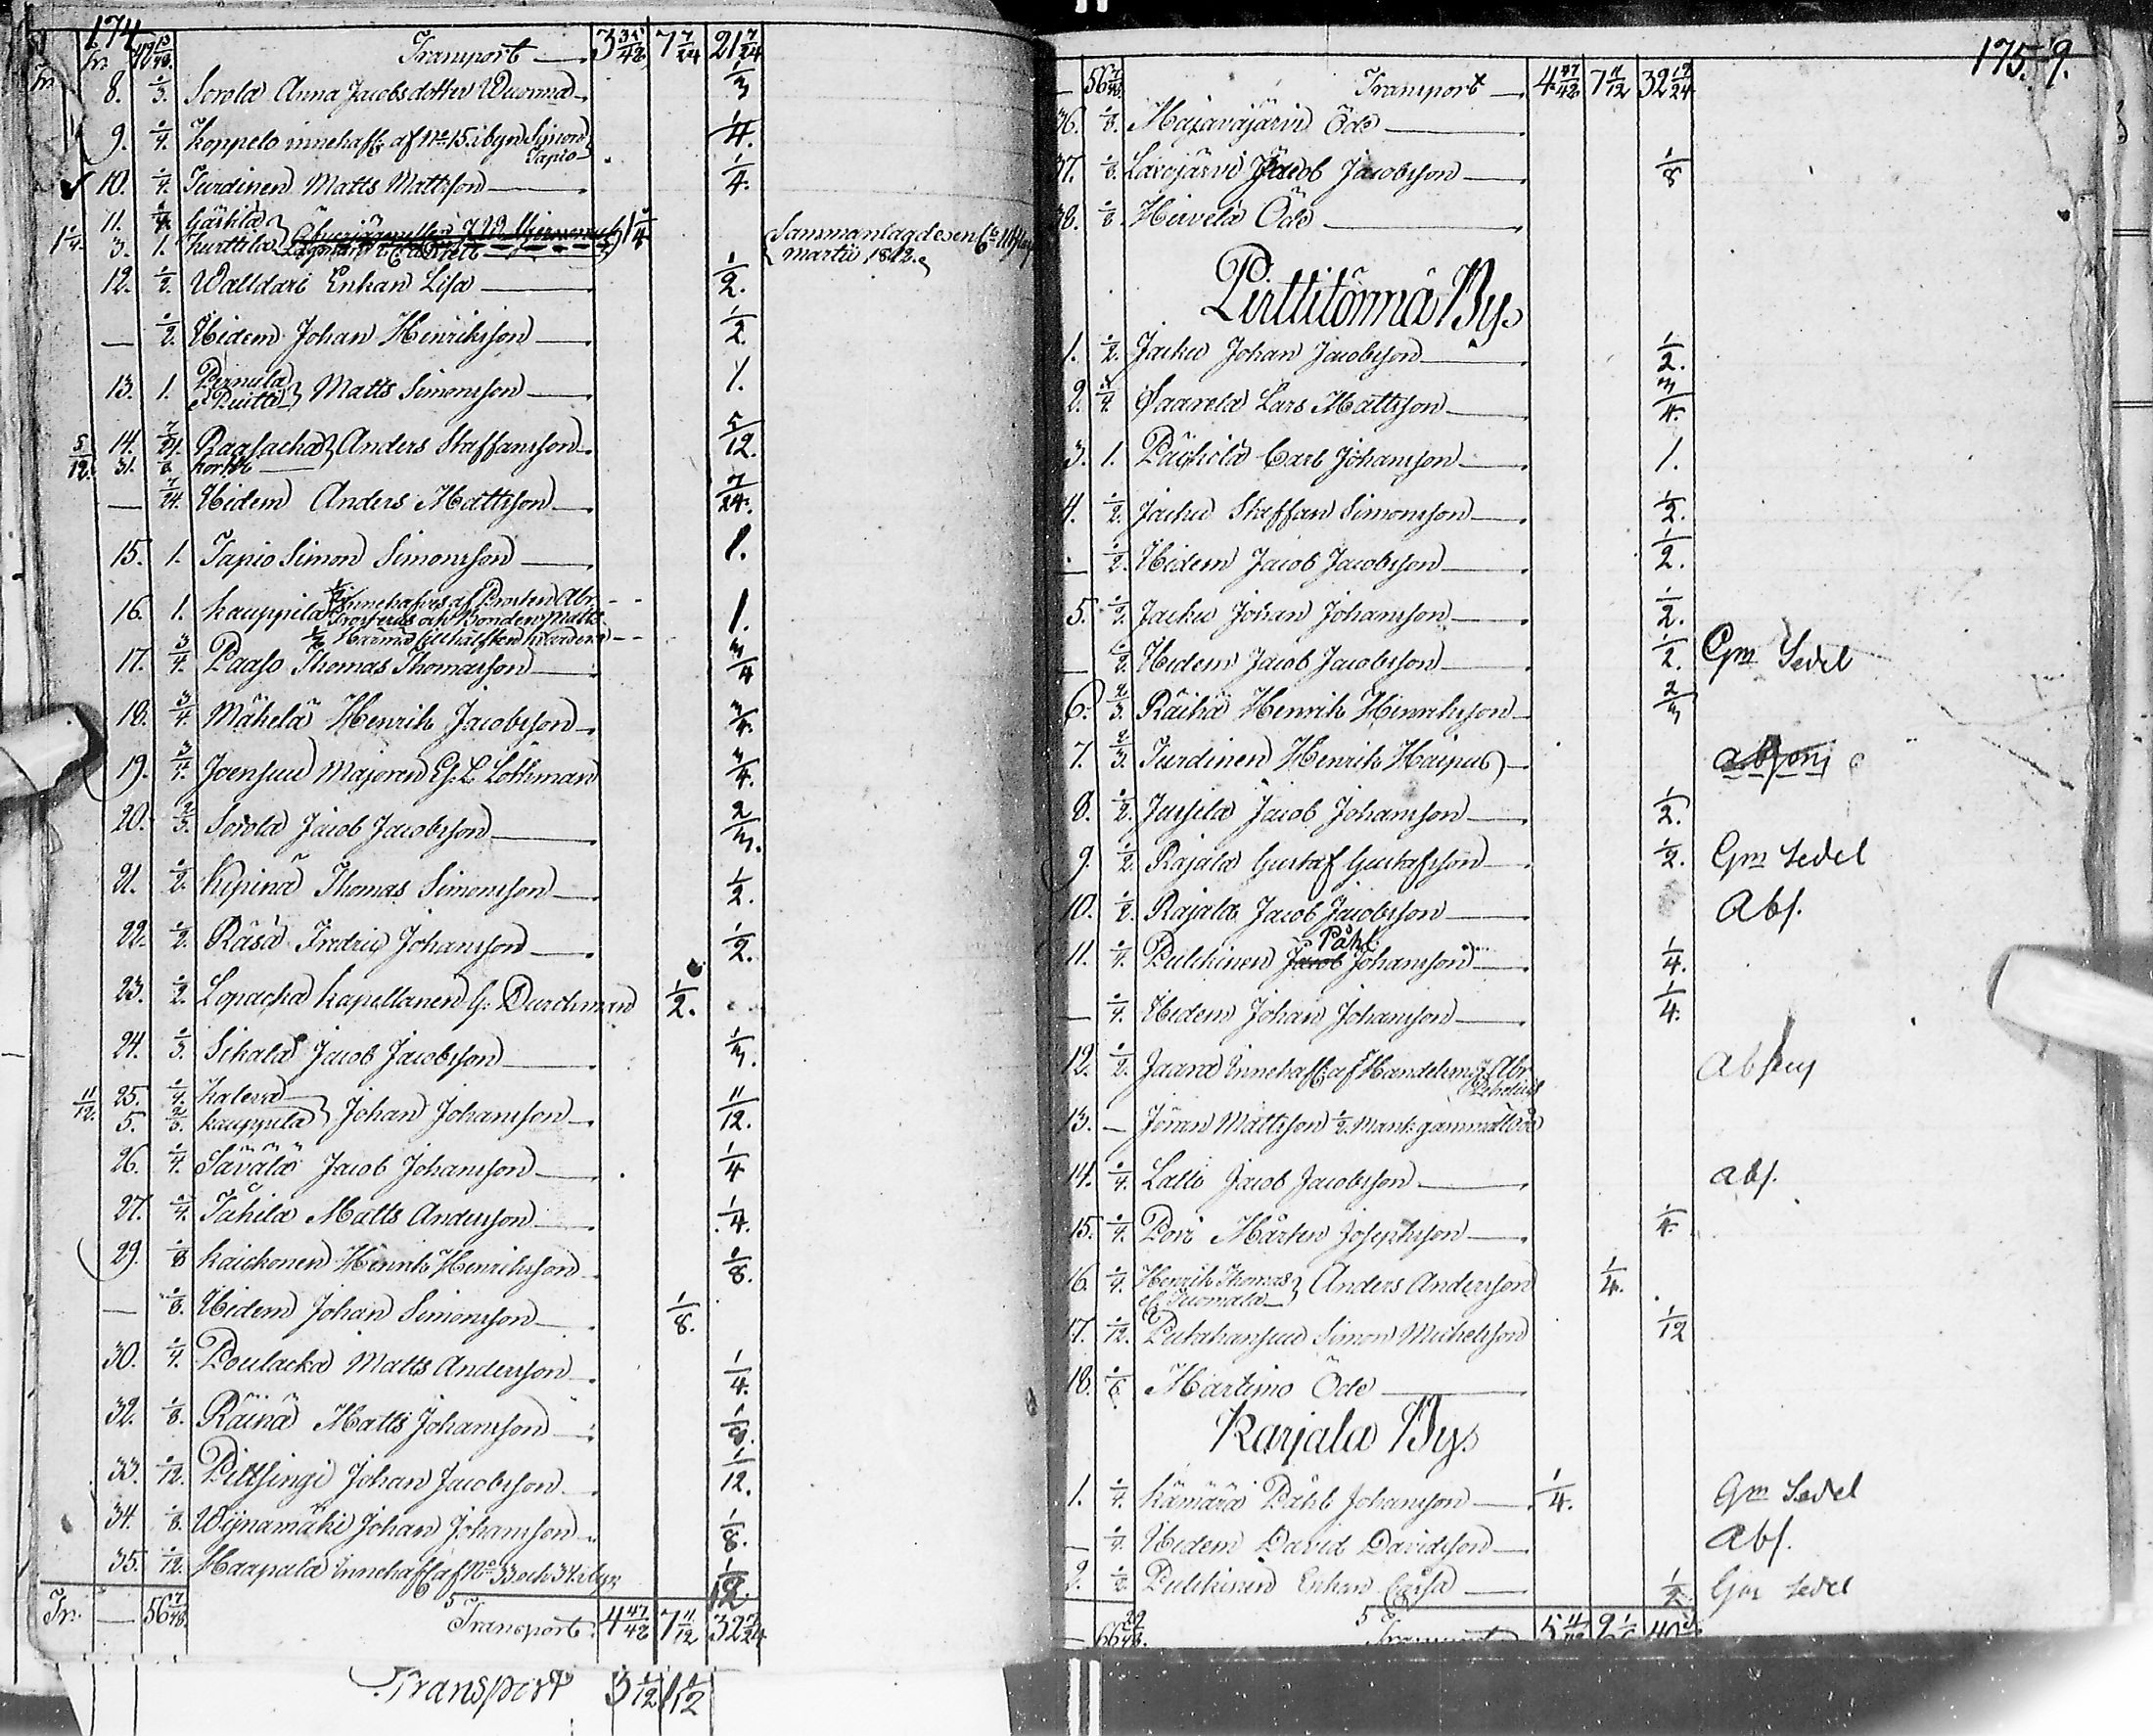 174
Transport 7 7/24 21 7/24
8. 1/3. Sorola Anna Jacobsdotter Wuorma 1/3
9. 1/4. Koppelo innehafv: af No 15 i byn Simon Tapio 1/4.
10. 1/4. Turdinen Matts Mattsson 1/4.
11. 1/4. 1 1/4
1 1/4. 3. 1. Kurttila Sammanlagde en
Martii 1812.
12. 1/2. Walldari Enkan Lisa 1/2.
— 1/2. Ibidem Johan Henriksson 1/2.
13. 1. Pernula & Puitti Matts Simonsson 1.
5/12. 14. 7/24. Raasacka Anders Staffansson 5/12.
31. 1/8. Kortti
— 7/24. Ibidem Anders Mattsson 7/24.
15. 1. Tapio Simon Simonsson 1.
16. 1. Kauppila 1/2 Innehafves af Prosten Abr. 1.
Frosterus och Bonden Matts
1/2 Haama till hälften hvardera
17. 3/4. Paaso Thomas Thomasson 3/4
18. 3/4. Mähelä Henrik Jacobsson 3/4.
19. 3/4. Joensuu Majoren G. L. Lothman 3/4.
20. 2/3. Sorola Jacob Jacobsson 2/3.
21. 1/2. Kipinä Thomas Simonsson 1/2.
22. 1/2. Räsä Fredric Johansson 1/2.
23. 1/2. Lopacka Kapellanen G. Durchman 1/2.
24. 1/3. Sikala Jacob Jacobsson 1/3.
11/12. 25. 1/4. Kaleva Johan Johansson 11/12.
5. 2/3. Kauppila
26. 1/4. Sävälä Jacob Johansson 1/4
27. 1/4. Tåhila Matts Andersson 1/4.
29. 1/8 Kaickonen Henrik Henriksson 1/8.
— 1/8. Ibidem Johan Simonsson 1/8.
30. 1/4. Poulacka Matts Andersson 1/4.
32. 1/8. Räinä Matts Johansson 1/8.
33. 1/12. Pittsingi Johan Jacobsson 1/12.
34. 1/8. Wijnamäki Johan Johansson 1/8.
35. 1/12. Haapala innehaff af No 33 och 34 i byn 1/12
Tr. — 56 7/48. Transport 4 47/48 7 11/12 32 7/24
Transport 3 1/12 1 1/2
175. 9.
56 7/48. Transport 4 47/48 7 11/12 32 19/24
36. 1/8. Hajavajärvi Öde
37. 1/8. Lavojärvi Jacob Jacobsson 1/8
38. 1/8. Hirvelä Öde
Pirttitörmä By
1. 1/2. Jacku Johan Jacobsson 1/2.
2. 3/4. Saarela Lars Mattsson 3/4.
3. 1. Päckilä Carl Johansson 1.
4. 1/2. Jacku Staffan Simonsson 1/2.
— 1/2. Ibidem Jacob Jacobsson 1/2.
5. 1/2. Jacku Johan Johansson 1/2.
— 1/2. Ibidem Jacob Jacobsson 1/2. Gm Sedel
6. 2/3. Räihä Henrik Henriksson 2/3
7. 2/3. Turdinen Henrik Haipus
8. 1/2. Jussila Jacob Johansson 1/2.
9. 1/2. Rajala Gustaf Gustafsson 1/2. Gm Sedel
10. 1/2. Rajala Jacob Jacobsson Abs.
11. 1/4. Pulckinen Jacob Påhl Johansson 1/4.
— 1/4. Ibidem Johan Johansson 1/4.
12. 1/2. Jaara Innehaff: af Handelsm: Abr
13. — Jöran Mattsson 1/2 Mank gammalt öde
14. 1/4. Lalli Jacob Jacobsson abs.
15. 1/4. Pori Mårten Josephsson 1/4.
16. 1/4. Henrik Thomas & Tuomala Anders Andersson 1/4.
17. 1/12. Putahansuu Simon Michelsson 1/12
18. 1/6. Martimo Öde
Karjala By
1. 1/4. Kämärä Påhl Johansson 1/4. Gm Sedel
— 1/4. Ibidem David Davidsson Abs.
2. 1/2. Pulckinen Enkan Caisa 1/2. Gm Sedel
Transport